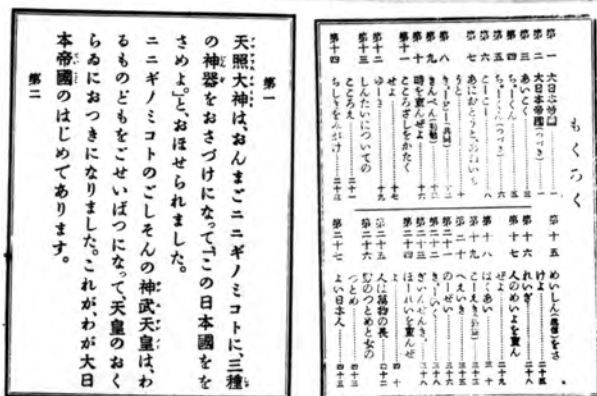 もくろく
第一 大日本帝國 一
第二 大日本帝國(つづき)
第三 あいこく
第四 ちゅーくん 五
第五 ちゅーくん(つづき) 六
第六 こーこー
第七 あにおとうと、あねいも
うと
第八 きょーどー(共同)
第九 きんべん(勤勉)
第十 時を重んぜよ
第十一 こころざしをかたく
せよ 十七
第十二 ゆーき 十九
第十三 しんたいについての
こころえ 二十一
第十四 ちしきをみがけ 二十三
第十五 めいしん(迷信)をさ
けよ 二十五
第十六 れいぎ 二十八
第十七 人のめいよを重ん
ぜよ 二十九
第十八 はくあい 三十
第十九 こーえき(公益) 三十三
第二十 へえいき 三十五
第二十一 のーぜい 三十六
第二十二 きょーいく
第二十三 ぎいんせんきょ 三十八
第二十四 ほーれいを重んぜ
よ 四十
第二十五 人は萬物の長 四十二
第二十六 男のつとめと女の
つとめ 四十三
第二十七 よい日本人 四十五
第一
天照大神は、おんまごニニギノミコトに、三種
の神器をおさづけになって、「この日本國をを
さめよ。」と、おほせられました。
ニニギノミコトのごしそんの神武天皇は、わ
るものどもをごせいばつになって、天皇のおく
らゐにおつきになりました。これが、わが大日
本帝國のはじめであります。
第二